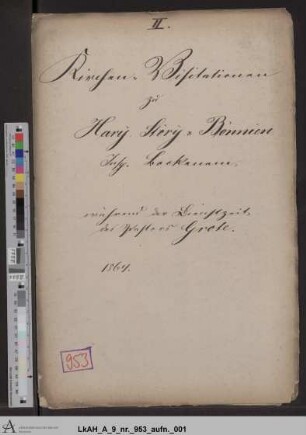 II.
Kirchen-Visitationen
zu
Hary, Störy u. Bönnien
Insp. Bockenem.
während der Dienstzeit
des Pastors Grote.
1864.
953
LkAH_A_9_nr._953_aufn._001